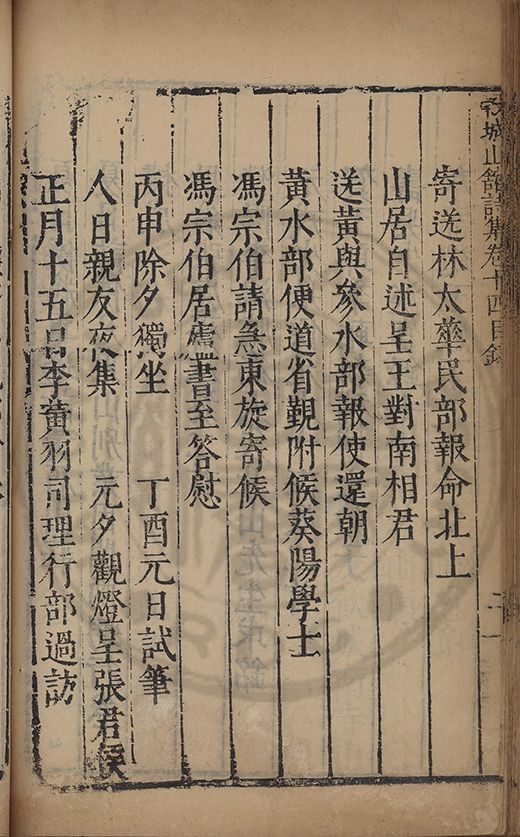 城山館詩集卷十四目錄
寄送林太華民部報命北上
山居自述呈王對南相君
送黃與參水部報使還朝
黃水部便道省覲附候葵陽學士
馮宗伯請急東旋寄候
馮宗伯居廬書至答慰
丙申除夕獨坐 丁酉元日試筆
人日親友夜集 元夕觀燈呈張君侯
正月十五日李黃羽司理行部過訪